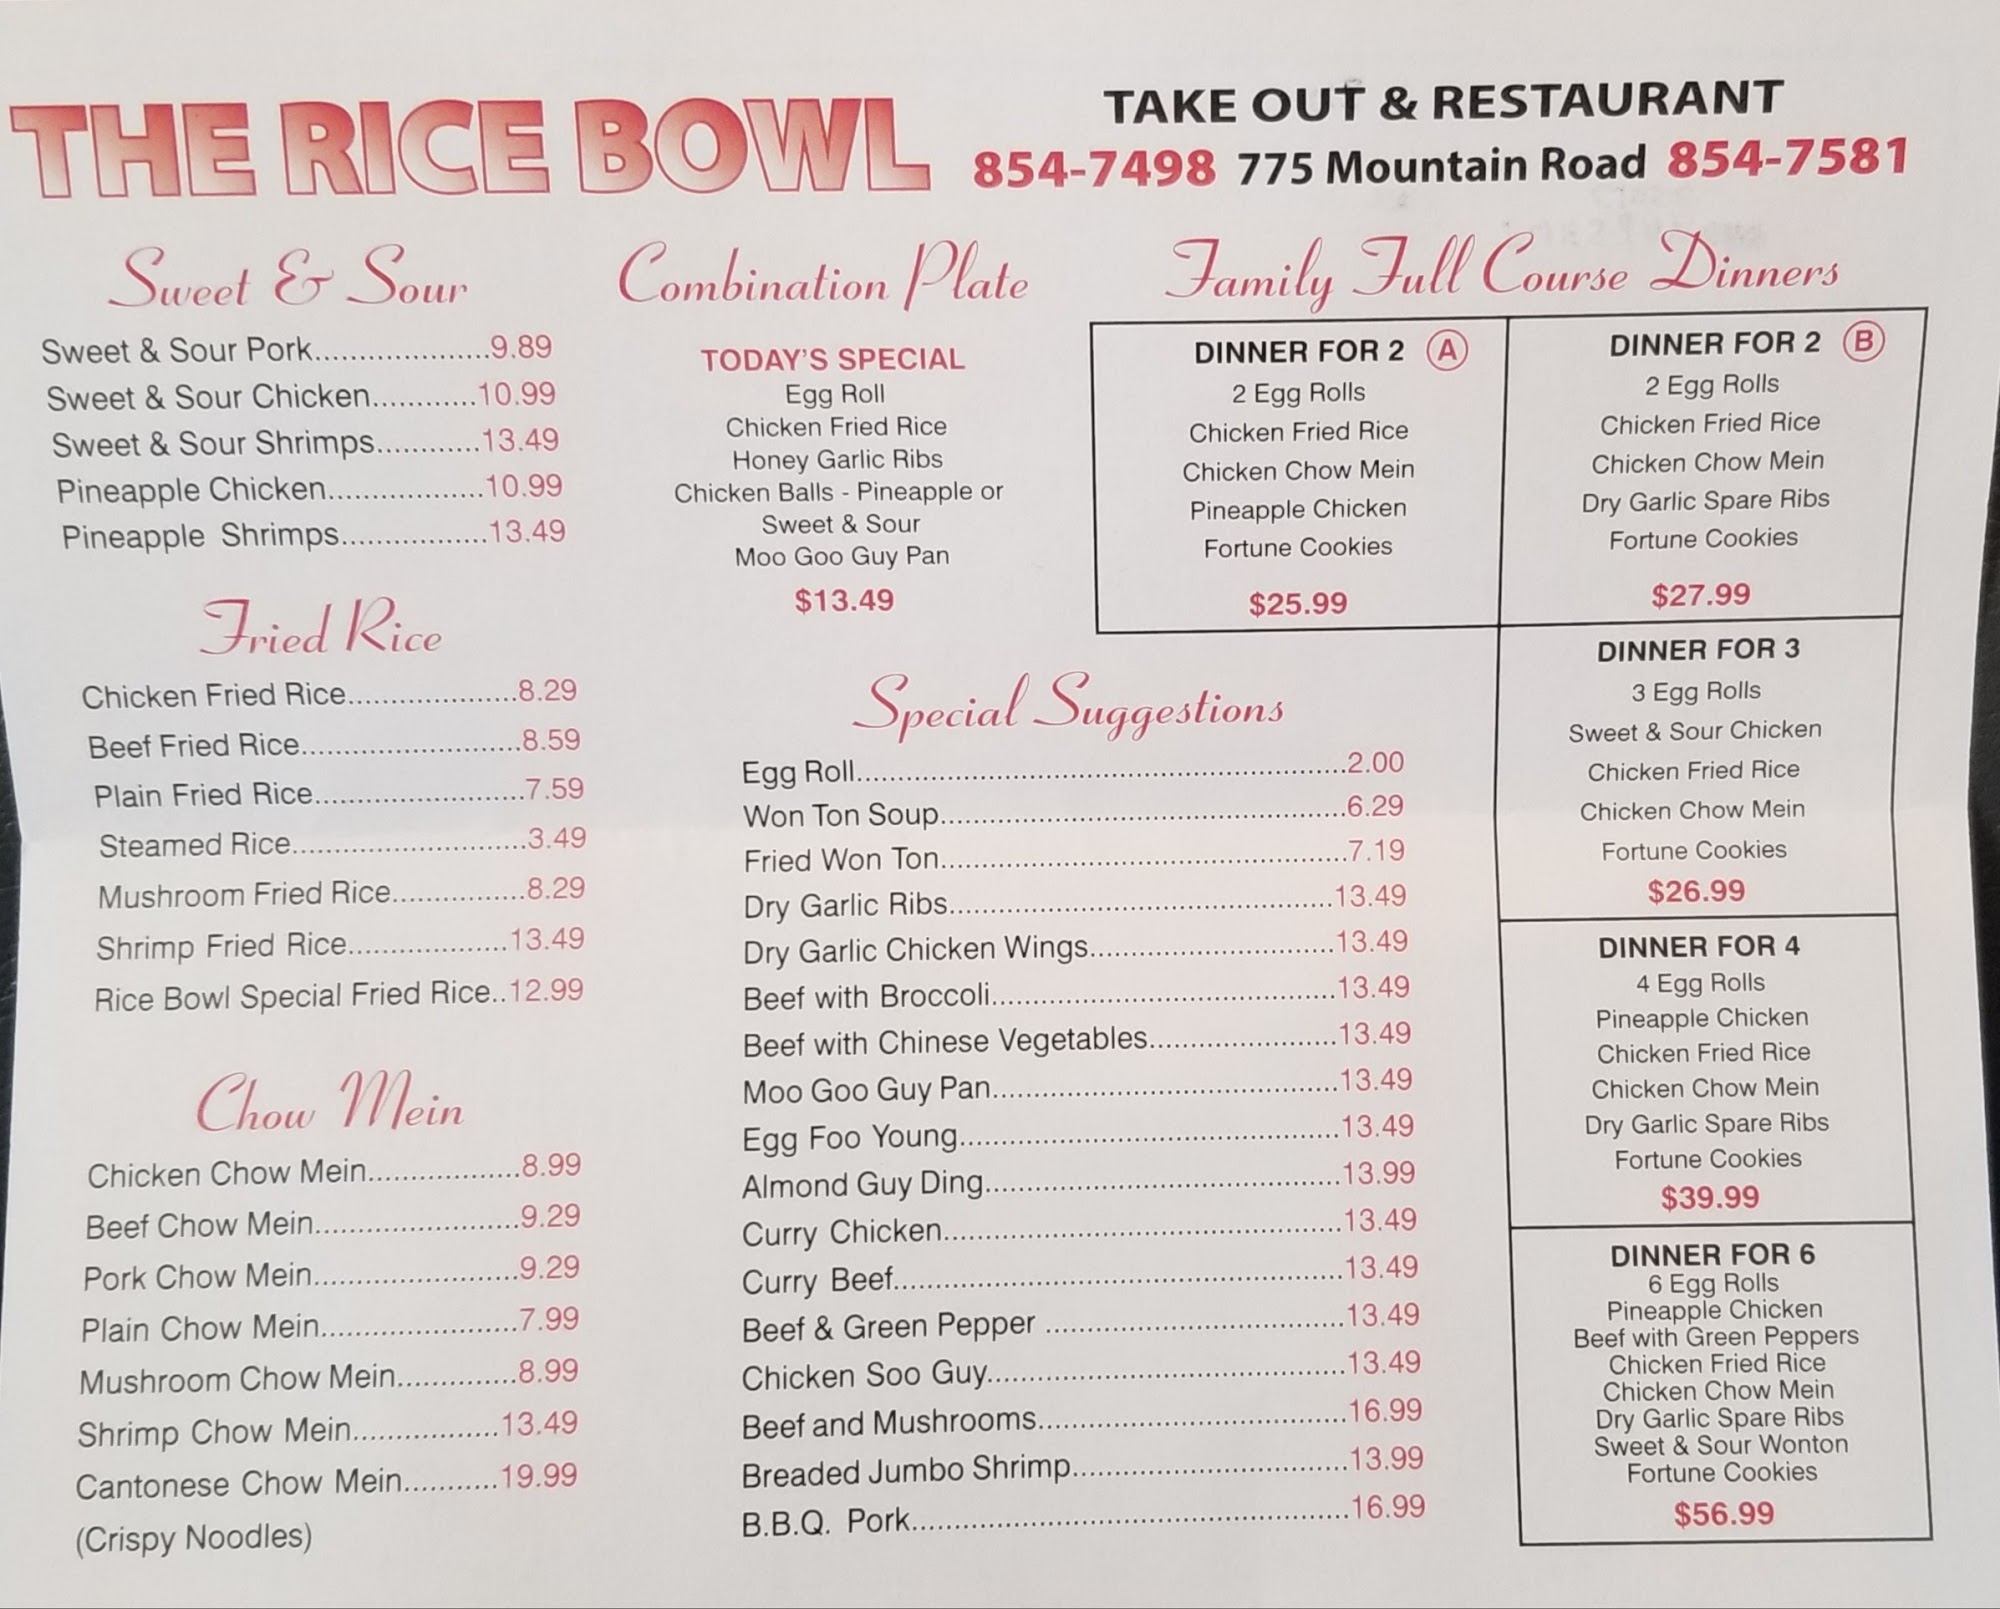 THE RICE BOWL
TAKE OUT & RESTAURANT
854-7498 775 Mountain Road 854-7581
Sweet & Sour
Sweet & Sour Pork....................9.89
Sweet & Sour Chicken............10.99
Sweet & Sour Shrimps............13.49
Pineapple Chicken..................10.99
Pineapple Shrimps.................13.49
Fried Rice
Chicken Fried Rice...................8.29
Beef Fried Rice.........................8.59
Plain Fried Rice........................7.59
Steamed Rice...........................3.49
Mushroom Fried Rice...............8.29
Shrimp Fried Rice..................13.49
Rice Bowl Special Fried Rice..12.99
Chow Mein
Chicken Chow Mein.................8.99
Beef Chow Mein.......................9.29
Pork Chow Mein.......................9.29
Plain Chow Mein......................7.99
Mushroom Chow Mein.............8.99
Shrimp Chow Mein.................13.49
Cantonese Chow Mein...........19.99
(Crispy Noodles)
Combination Plate
TODAY'S SPECIAL
Egg Roll
Chicken Fried Rice
Honey Garlic Ribs
Chicken Balls - Pineapple or
Sweet & Sour
Moo Goo Guy Pan
$13.49
Special Suggestions
Egg Roll........................................................2.00
Won Ton Soup..............................................6.29
Fried Won Ton..............................................7.19
Dry Garlic Ribs...........................................13.49
Dry Garlic Chicken Wings...........................13.49
Beef with Broccoli.......................................13.49
Beef with Chinese Vegetables.....................13.49
Moo Goo Guy Pan.......................................13.49
Egg Foo Young...........................................13.49
Almond Guy Ding........................................13.99
Curry Chicken.............................................13.49
Curry Beef...................................................13.49
Beef & Green Pepper .................................13.49
Chicken Soo Guy........................................13.49
Beef and Mushrooms..................................16.99
Breaded Jumbo Shrimp..............................13.99
B.B.Q. Pork.................................................16.99
Family Full Course Dinners
DINNER FOR 2 A
2 Egg Rolls
Chicken Fried Rice
Chicken Chow Mein
Pineapple Chicken
Fortune Cookies
$25.99
DINNER FOR 2 B
2 Egg Rolls
Chicken Fried Rice
Chicken Chow Mein
Dry Garlic Spare Ribs
Fortune Cookies
$27.99
DINNER FOR 3
3 Egg Rolls
Sweet & Sour Chicken
Chicken Fried Rice
Chicken Chow Mein
Fortune Cookies
$26.99
DINNER FOR 4
4 Egg Rolls
Pineapple Chicken
Chicken Fried Rice
Chicken Chow Mein
Dry Garlic Spare Ribs
Fortune Cookies
$39.99
DINNER FOR 6
6 Egg Rolls
Pineapple Chicken
Beef with Green Peppers
Chicken Fried Rice
Chicken Chow Mein
Dry Garlic Spare Ribs
Sweet & Sour Wonton
Fortune Cookies
$56.99